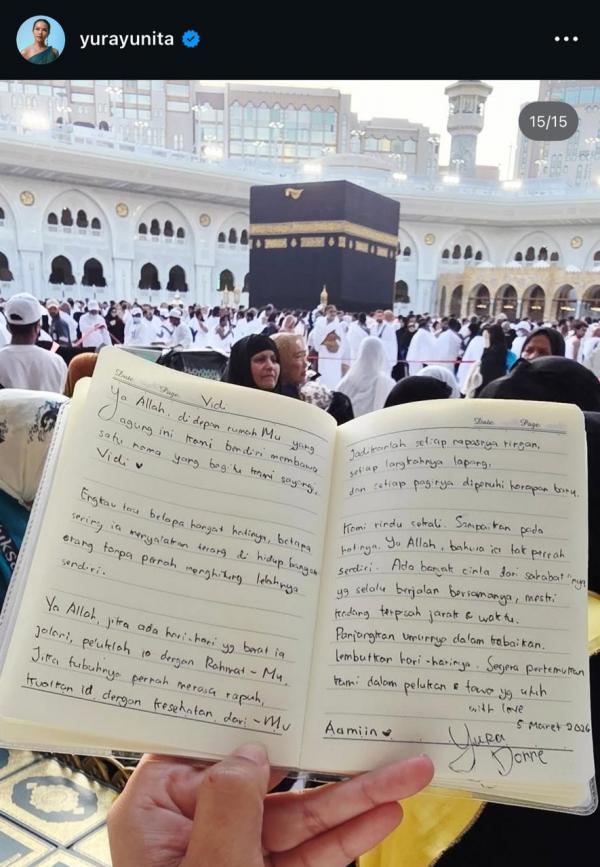 yurayunita
15/15
Date Page
Vidi
Ya Allah, di depan rumah Mu yang
agung ini kami berdiri membawa
satu nama yang begitu kami sayangi,
Vidi ♥
Engkau tau betapa hangat hatinya, betapa
sering ia menyalakan terang di hidup banyak
orang tanpa pernah menghitung lelahnya
sendiri.
Ya Allah, jika ada hari-hari yg berat ia
jalani, peluklah ia dengan Rahmat-Mu.
Jika tubuhnya pernah merasa rapuh,
kuatkan ia dengan kesehatan dari-Mu
Date Page
Jadikanlah setiap napasnya ringan,
setiap langkahnya lapang,
dan setiap paginya dipenuhi harapan baru.
Kami rindu sekali. Sampaikan pada
hatinya, Ya Allah, bahwa ia tak pernah
sendiri. Ada banyak cinta dari sahabat"nya
yg selalu berjalan bersamanya, meski
kadang terpisah jarak & waktu.
Panjangkan umurnya dalam kebaikan.
Lembutkan hari-harinya. Segera pertemukan
kami dalam pelukan & tawa yg utuh
with love
5 Maret 2026
Aamiin ♥
Yura
Donne